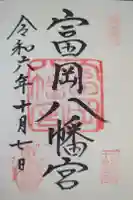 富岡八幡宮
令和六年十月七日